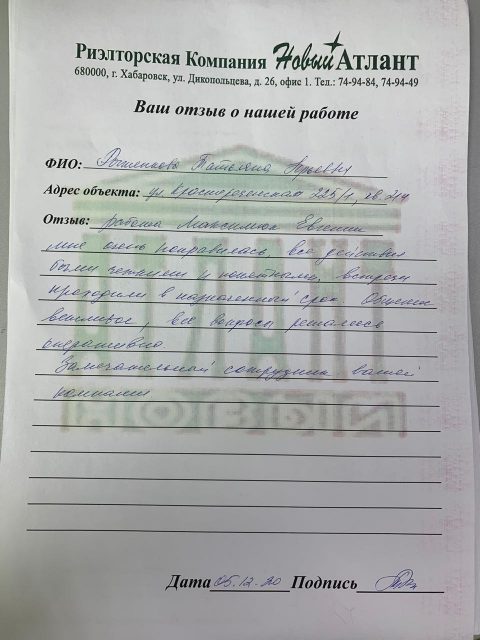 Риэлторская Компания Новый Атлант
680000, г. Хабаровск, ул. Дикопольцева, д. 26, офис 1. Тел.: 74-94-84, 74-94-49
Ваш отзыв о нашей работе
ФИО: Татьяна Юрьевна
Адрес объекта: ул Краснореченская 225/1, кв. 214
Отзыв: работа Максимюк Евгении
мне очень понравилась, все действия
были четкими и понятными, встречи
проходили в назначенный срок. Общение
вежливое, все вопросы решались
оперативно.
Замечательный сотрудник вашей
компании
Дата 05.12.20 Подпись